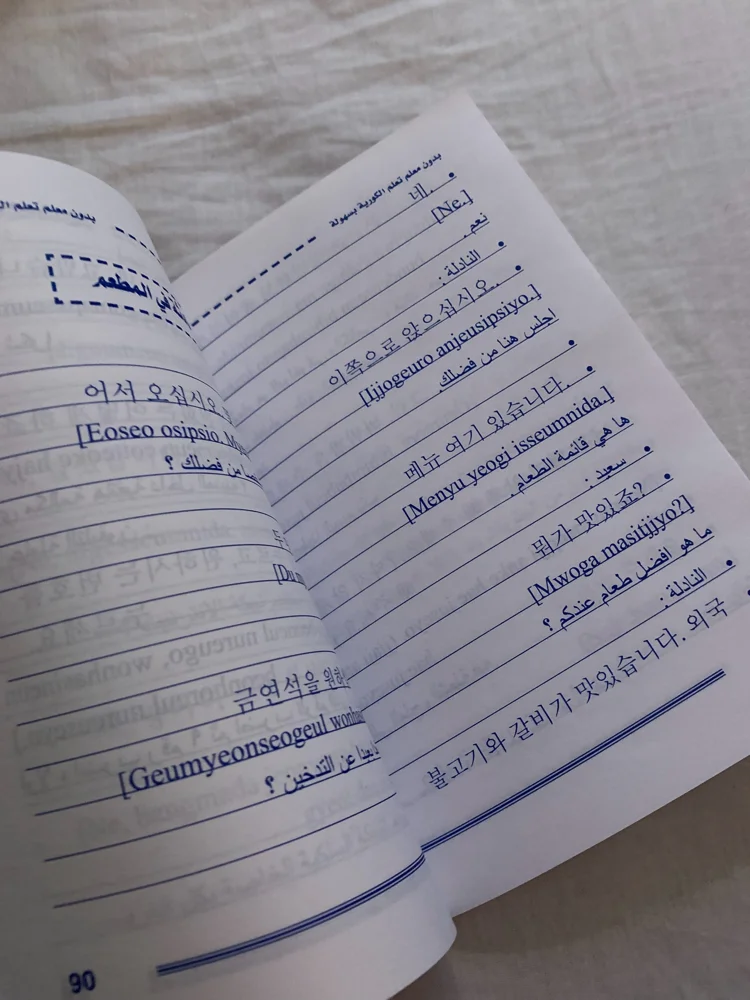 بدون معلم تعلم
في المطعم
어서 오십시오
[Eoseo osipsio.
من فضلك ؟
[Du
금연석을
[Geumyeonseogeul
عن التدخين ؟
90
بدون معلم تعلم الكورية بسهولة
• 네.
[Ne.]
نعم.
• النادلة :
• 이쪽으로 앉으십시오.
[Ijjogeuro anjeusipsiyo.]
اجلس هنا من فضلك.
•
• 메뉴 여기 있습니다.
[Menyu yeogi isseumnida.]
ها هي قائمة الطعام.
• سعيد :
• 뭐가 맛있죠?
[Mwoga masitjjyo?]
ما هو افضل طعام عندكم ؟
• النادلة :
• 불고기와 갈비가 맛있습니다. 외국